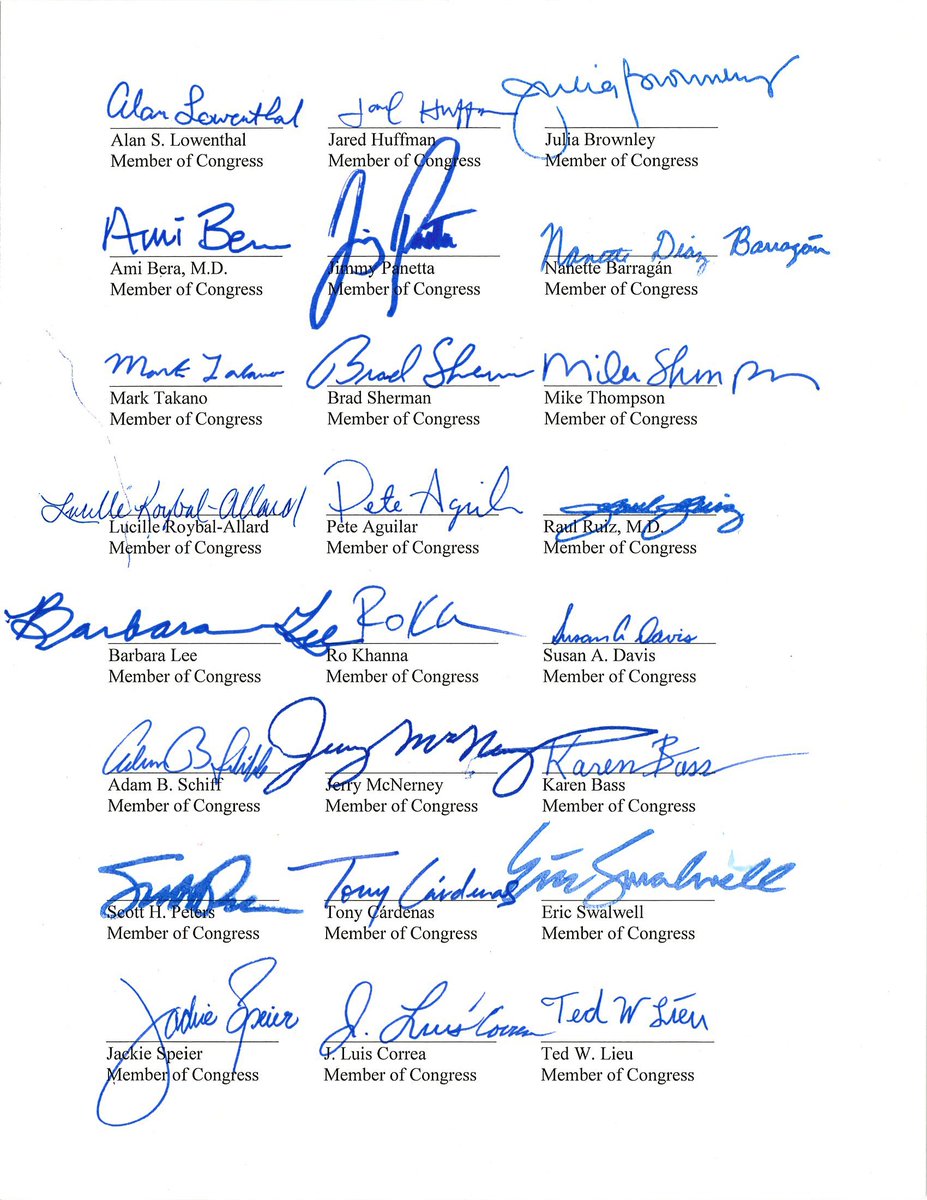 Alan Lowenthal
Alan S. Lowenthal
Member of Congress
Jared Huffman
Member of Congress
Julia Brownley
Julia Brownley
Member of Congress
Ami Bera
Ami Bera, M.D.
Member of Congress
Jimmy Panetta
Member of Congress
Nanette Diaz Barragán
Nanette Barragán
Member of Congress
Mark Takano
Mark Takano
Member of Congress
Brad Sherman
Brad Sherman
Member of Congress
Mike Thompson
Member of Congress
Lucille Roybal-Allard
Lucille Roybal-Allard
Member of Congress
Pete Aguilar
Pete Aguilar
Member of Congress
Raul Ruiz, M.D.
Member of Congress
Barbara Lee
Barbara Lee
Member of Congress
Ro Kh
Ro Khanna
Member of Congress
Susan A Davis
Susan A. Davis
Member of Congress
Adam B. Schiff
Adam B. Schiff
Member of Congress
Jerry McNerney
Jerry McNerney
Member of Congress
Karen Bass
Karen Bass
Member of Congress
Scott H. Peters
Member of Congress
Tony Cárdenas
Tony Cárdenas
Member of Congress
Eric Swalwell
Eric Swalwell
Member of Congress
Jackie Speier
Jackie Speier
Member of Congress
J. Luis Correa
J. Luis Correa
Member of Congress
Ted W Lieu
Ted W. Lieu
Member of Congress